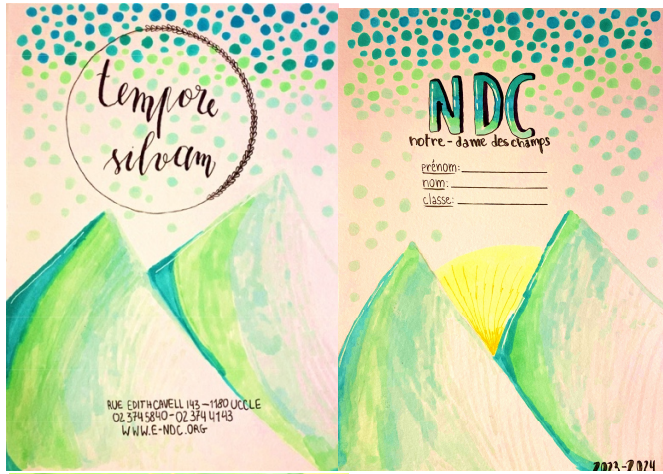 tempore
silvam
RUE EDITH CAVELL 143 - 1180 UCCLE
02 374 58 40 - 02 374 41 43
WWW.E-NDC.ORG
NDC
notre-dame des champs
prénom:
nom:
classe:
2023-2024